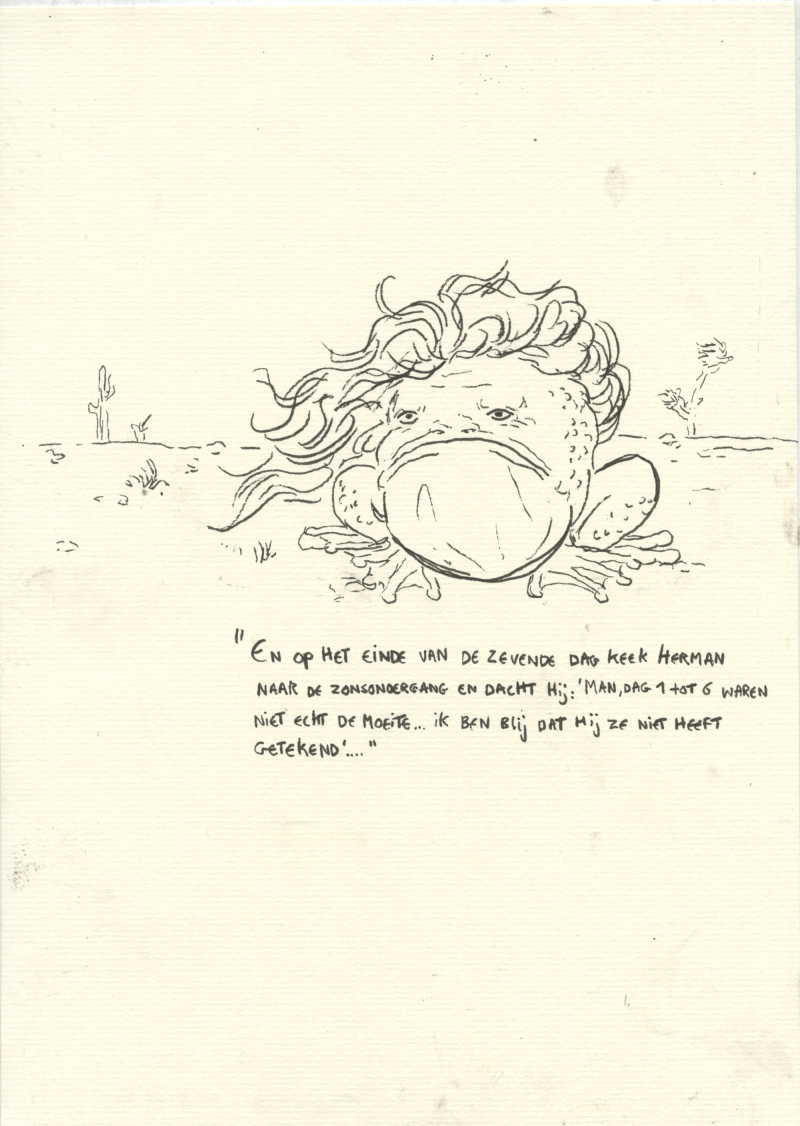 "En op het einde van de zevende dag keek Herman
naar de zonsondergang en dacht hij: 'Man, dag 1 tot 6 waren
niet echt de moeite... ik ben blij dat hij ze niet heeft
getekend'...."